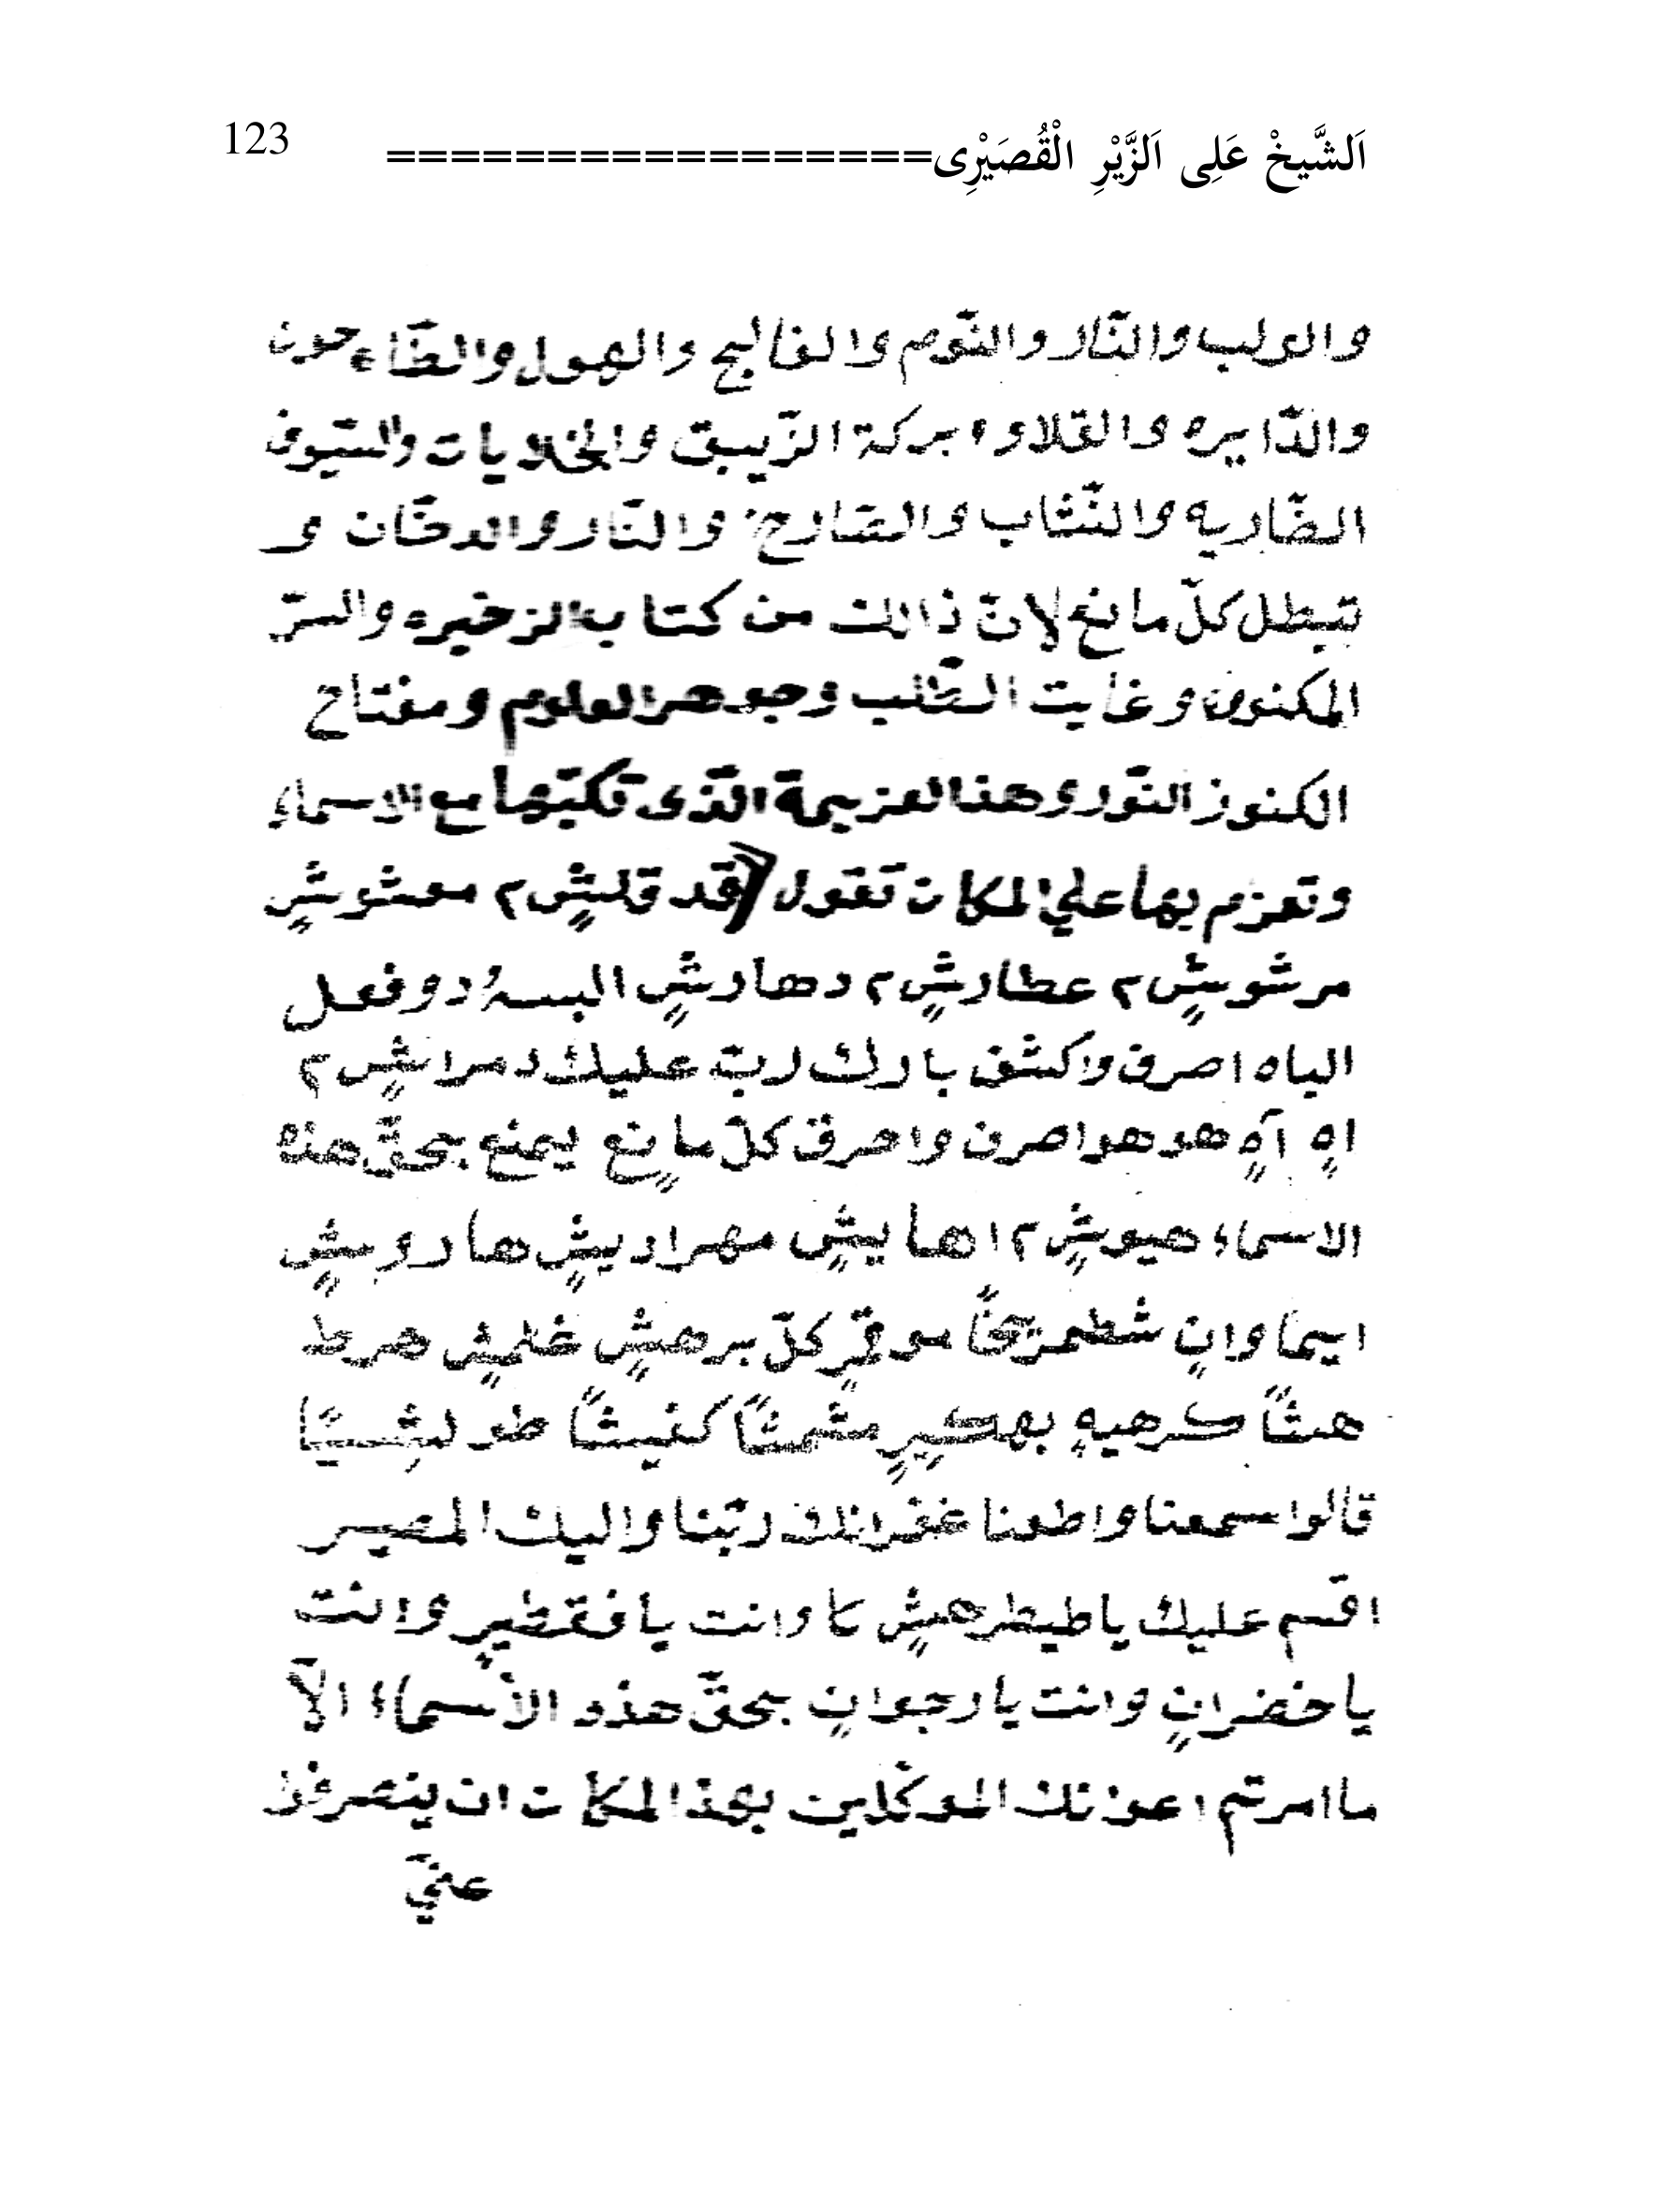 اَلشَّيخْ عَلِى اَلزَّيْرِ الْقُصَيْرِى================= 123
والولب والنّار والنّوم والفالج والهول والطّاءحون
والدّايره والقلاوه بركة الزّيبق والخلويات والسّيوف
الضّاربه والنّشّاب والصّارخ والنّار والدخّان و
تبطل كلّ مانع لانّ ذالك من كتاب الزخيره والسّرّ
المكنون وغايت الطّلب وجوهر العلوم ومفتاح
الكنوز النّور وهذا العزيمة الّذى تكتبها مع الاسماء
وتعزم بها علي المكان تقول (قد قلشٍ ٢ معشوشٍ
مرشوشٍ ٢ عطارشٍ ٢ دهارشٍ البسهُ دوفعل
الباه اصرف واكشف بارك ربّ عليك دمراشٍ ٢
اهٍ آهٍ هو هو اصرف واحرق كلّ مانعٍ يمنع بحقّ هذه
الاسماء هيوشٍ ٢ اهايشٍ مهراديشٍ هارويشٍ
ايما وانٍ كلّ برهشٍ غلمشٍ هرط
هشاً كرهيهٍ بهكيرٍ مشمشاً كفيشاً طو
قالوا سمعنا واطعنا غفرانك ربّنا واليك المصير
اقسم عليك ياطيطرهشٍ وانت يافقطيرٍ وانت
ياخضرانٍ وانت يارجوانٍ بحقّ هذه الأسماء الاّ
ماامرتم اعوانك الموكّلين بهذا المكان ان ينصرفوا
عنّي